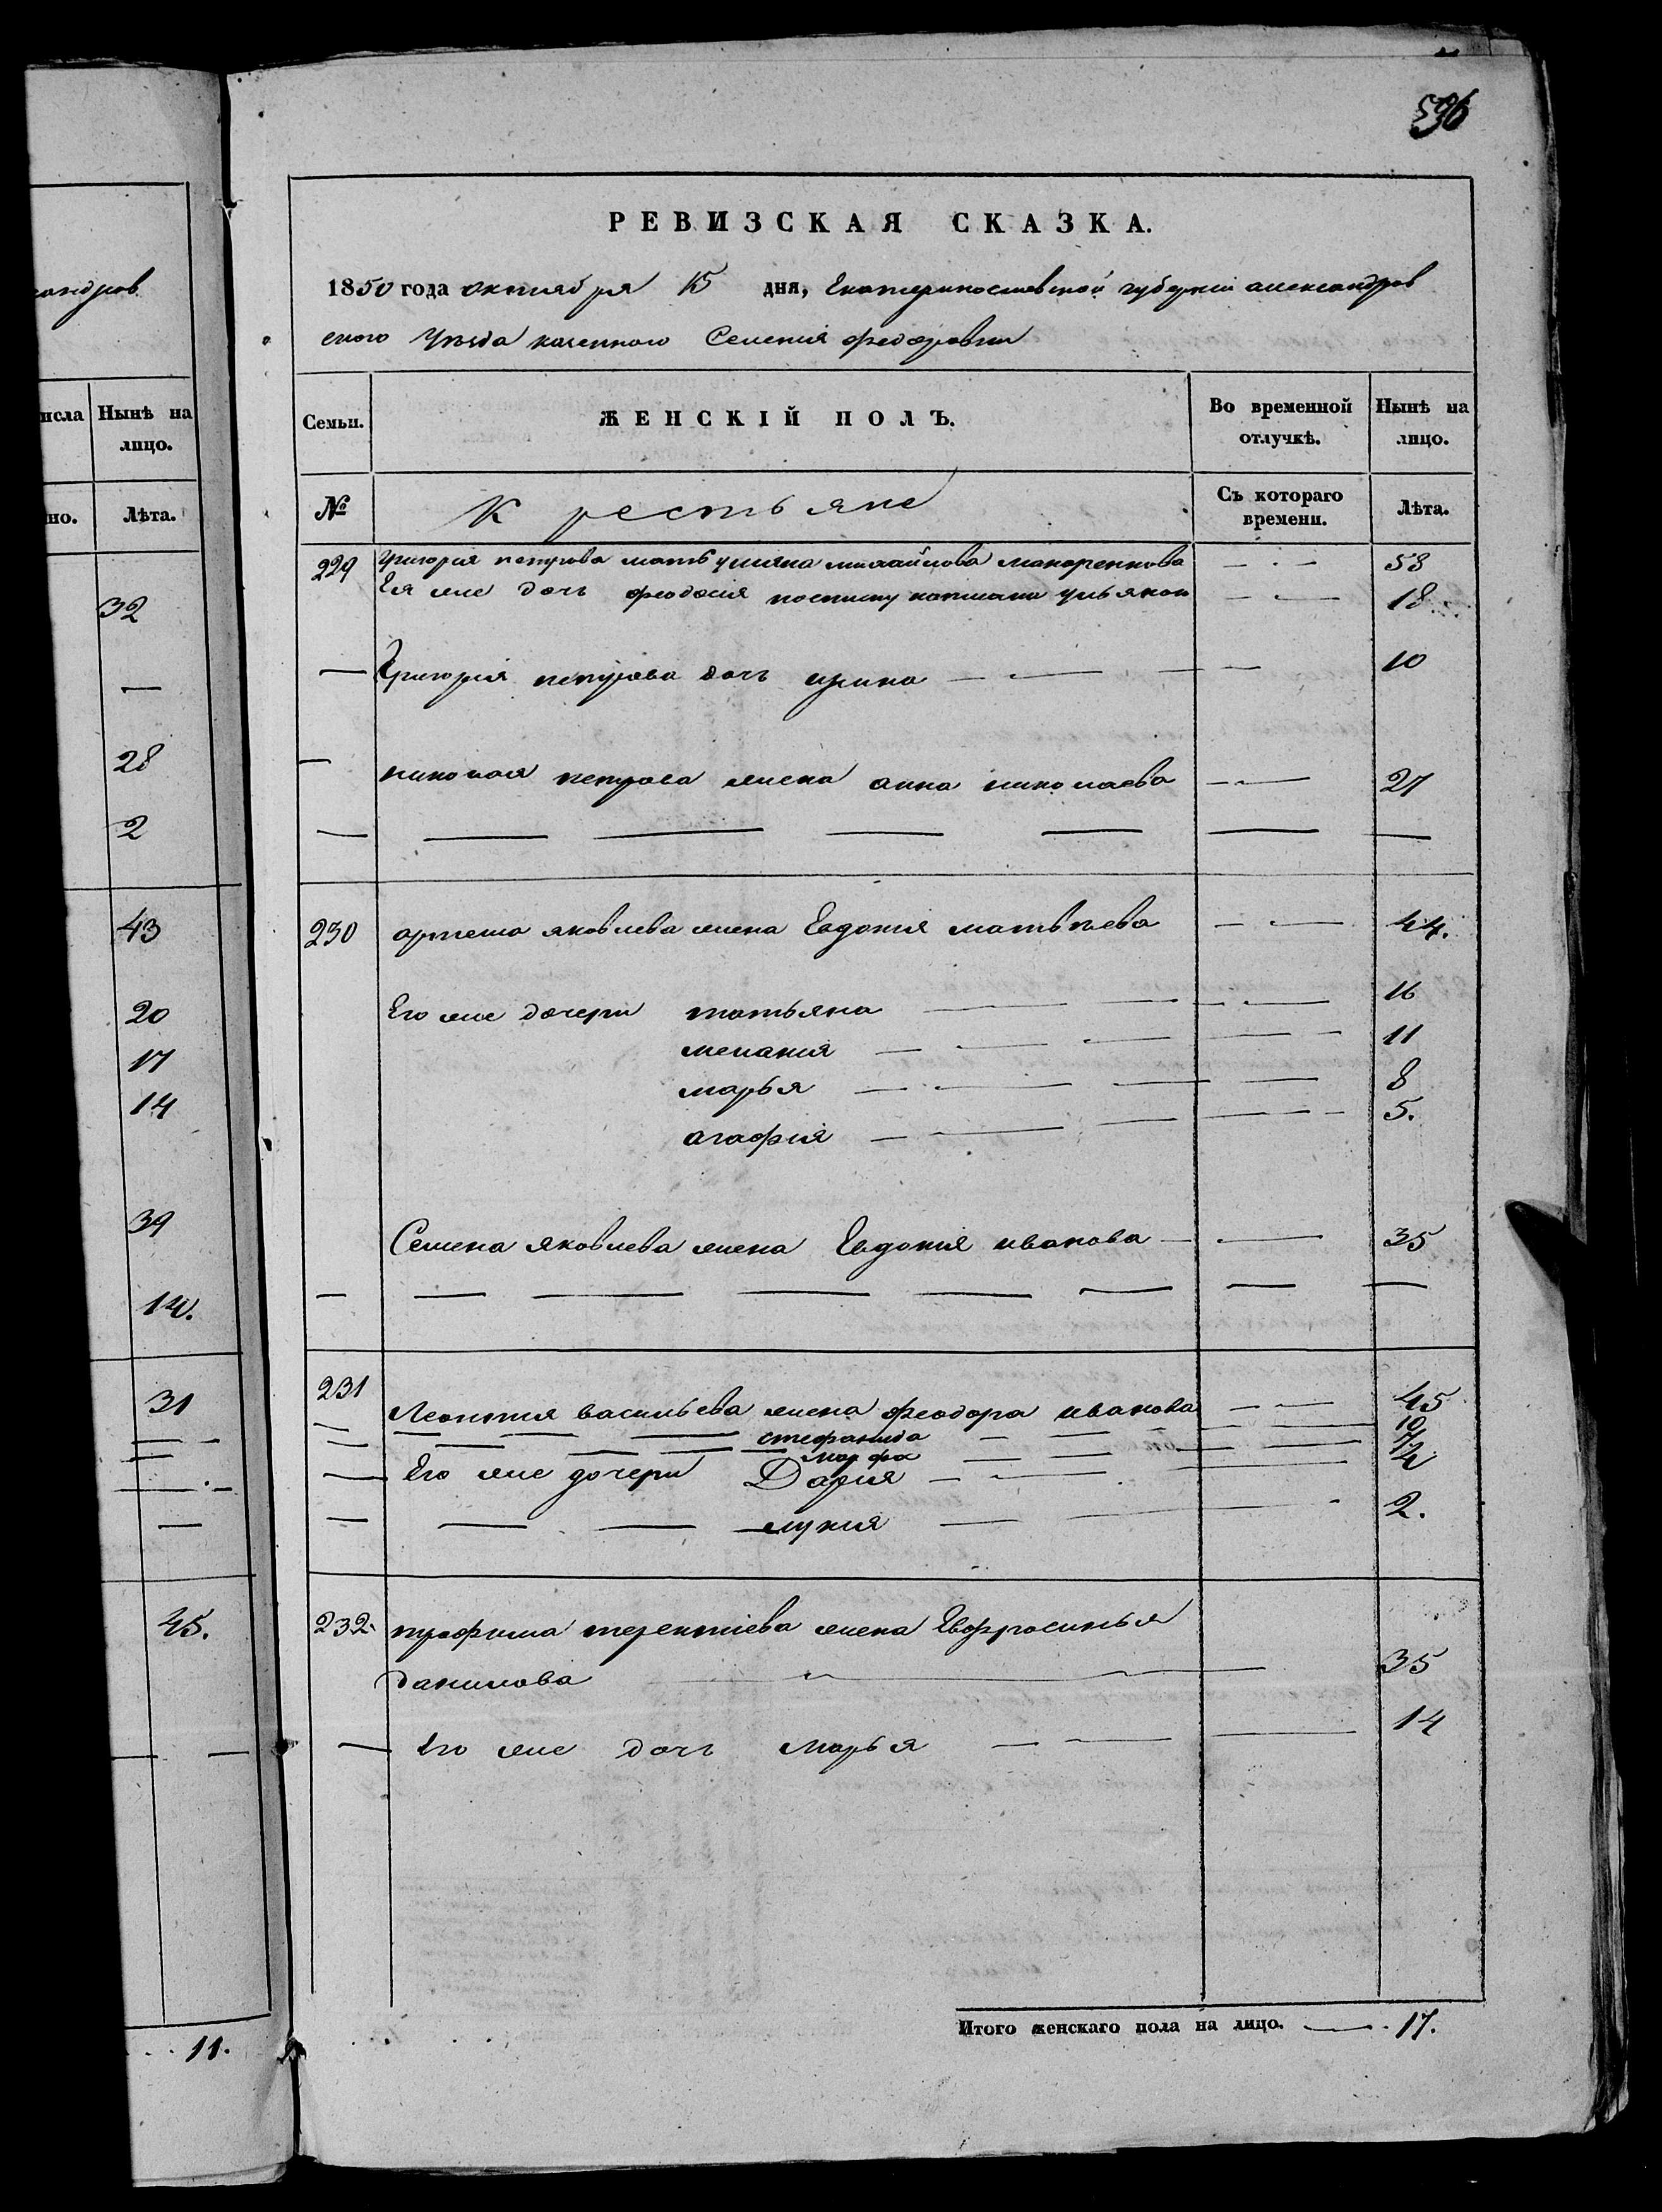 андров
исла Нынѣ на
лицо.
но. Лѣта.
32
—
28
2
43
20
17
14
39
14.
31
45.
11.
596
РЕВИЗСКАЯ СКАЗКА.
1850 года октября 15 дня, Екатеринославской губерніи александров
ского Уѣзда казенного Селенія федоровки
Семьи. ЖЕНСКІЙ ПОЛЪ. Во временной отлучкѣ. Нынѣ на лицо.
№ Крестьяне Съ котораго времени. Лѣта.
229 григория петрова мать улияна михайлова макаренкова — 53
Ея же дочь феодосия 18
— Григория петрова дочь ирина — 10
— николая петрова жена анна николаева — 27
230 артема яковлева жена Евдокия матвѣева — 44.
Его же дочери татьяна — 16
мелания — 11
марья — 8
агафия — 5.
Семена яковлева жена Евдокия иванова — 35
231 Леонтия васильева жена феодора иванова — 45
стефанида — 10
марфа — 7
— Его же дочери Дария — 4
— лукия — 2.
232. трофима терентіева жена Евфросинья
данилова — 35
— Его же дочь марья — 14
Итого женскаго пола на лицо. — 17.